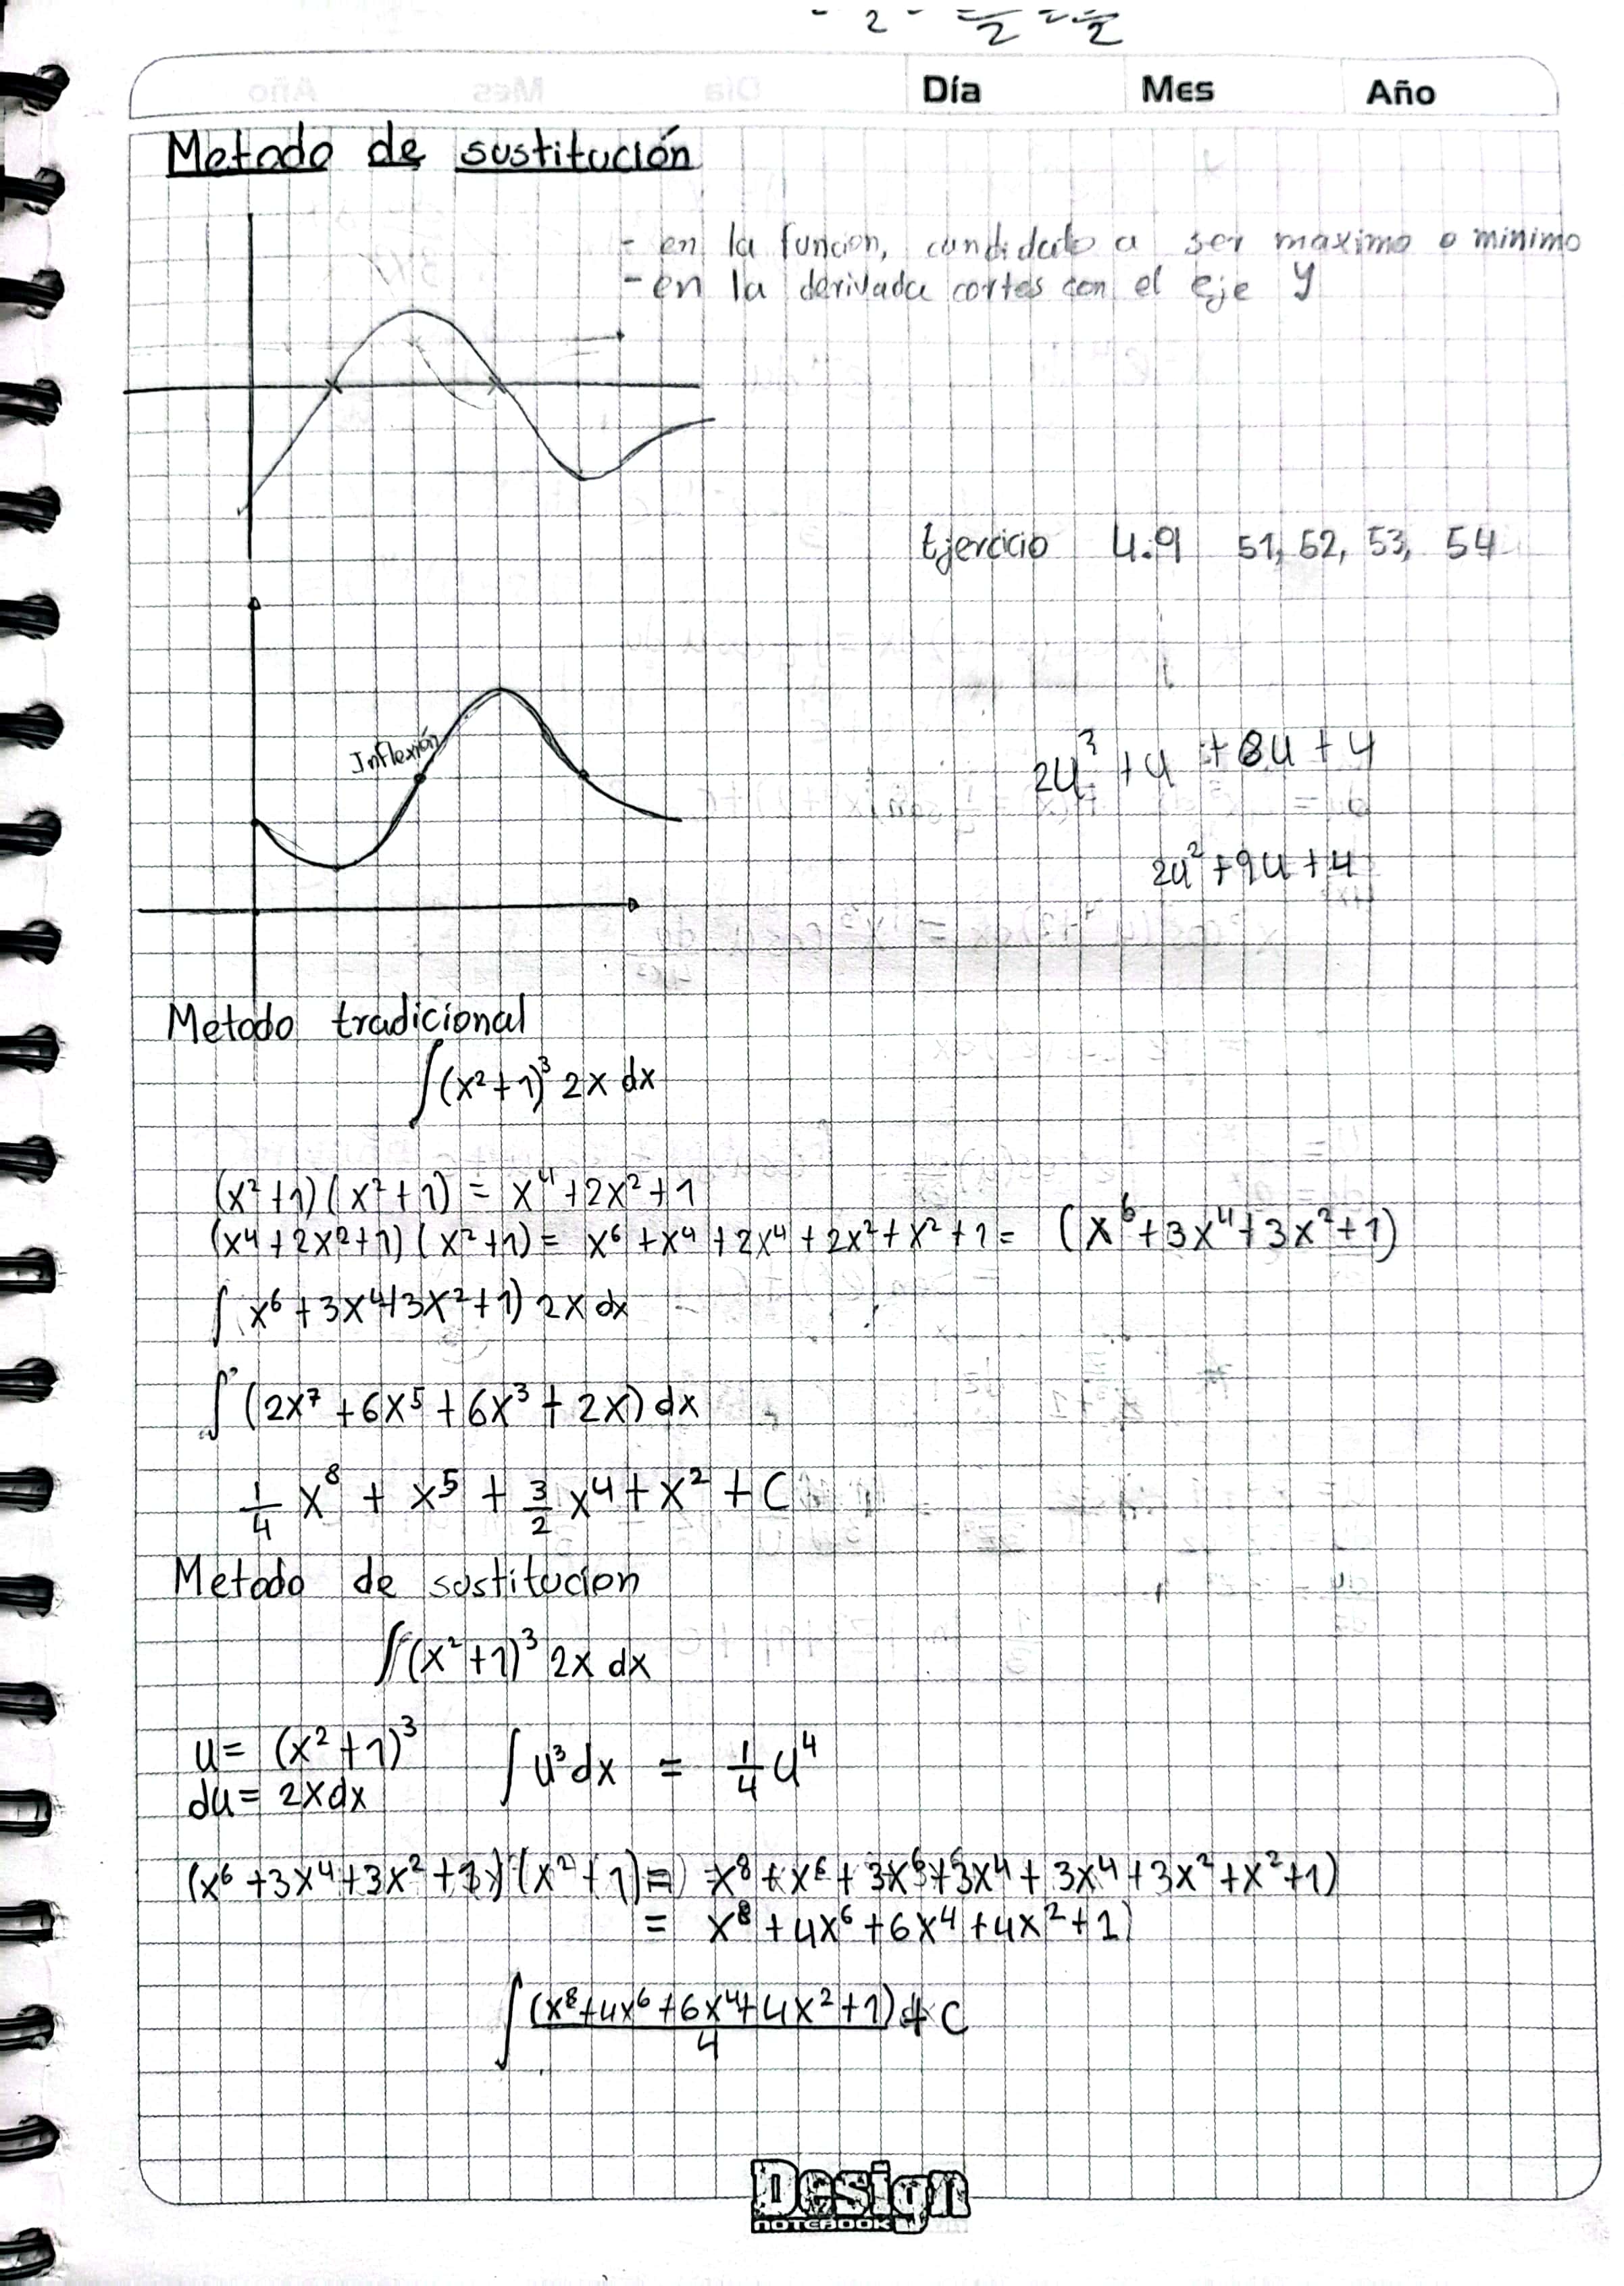 Día Mes Año
Metodo de sustitución
- en la funcion, candidato a ser maximo o minimo
- en la derivada cortes con el eje y
Ejercicio 4.9 51, 52, 53, 54
Inflexión
2u² + u + 8u + 4
2u² + 9u + 4
Metodo tradicional
∫(x²+1)³ 2x dx
(x²+1)(x²+1) = x⁴+2x²+1
(x⁴+2x²+1)(x²+1) = x⁶+x⁴+2x⁴+2x²+x²+1 = (x⁶+3x⁴+3x²+1)
∫ x⁶+3x⁴+3x²+1) 2x dx
∫(2x⁷+6x⁵+6x³+2x) dx
1/4 x⁸ + x⁵ + 3/2 x⁴ + x² + C
Metodo de sostitucion
∫(x²+1)³ 2x dx
u = (x²+1)³ ∫u³dx = 1/4 u⁴
du = 2xdx
(x⁶+3x⁴+3x²+1)(x²+1) = x⁸+x⁶+3x⁶+3x⁴+3x⁴+3x²+x²+1)
= x⁸+4x⁶+6x⁴+4x²+1)
∫(x⁸+4x⁶+6x⁴+4x²+1)/4 + C
Design
NOTEBOOK